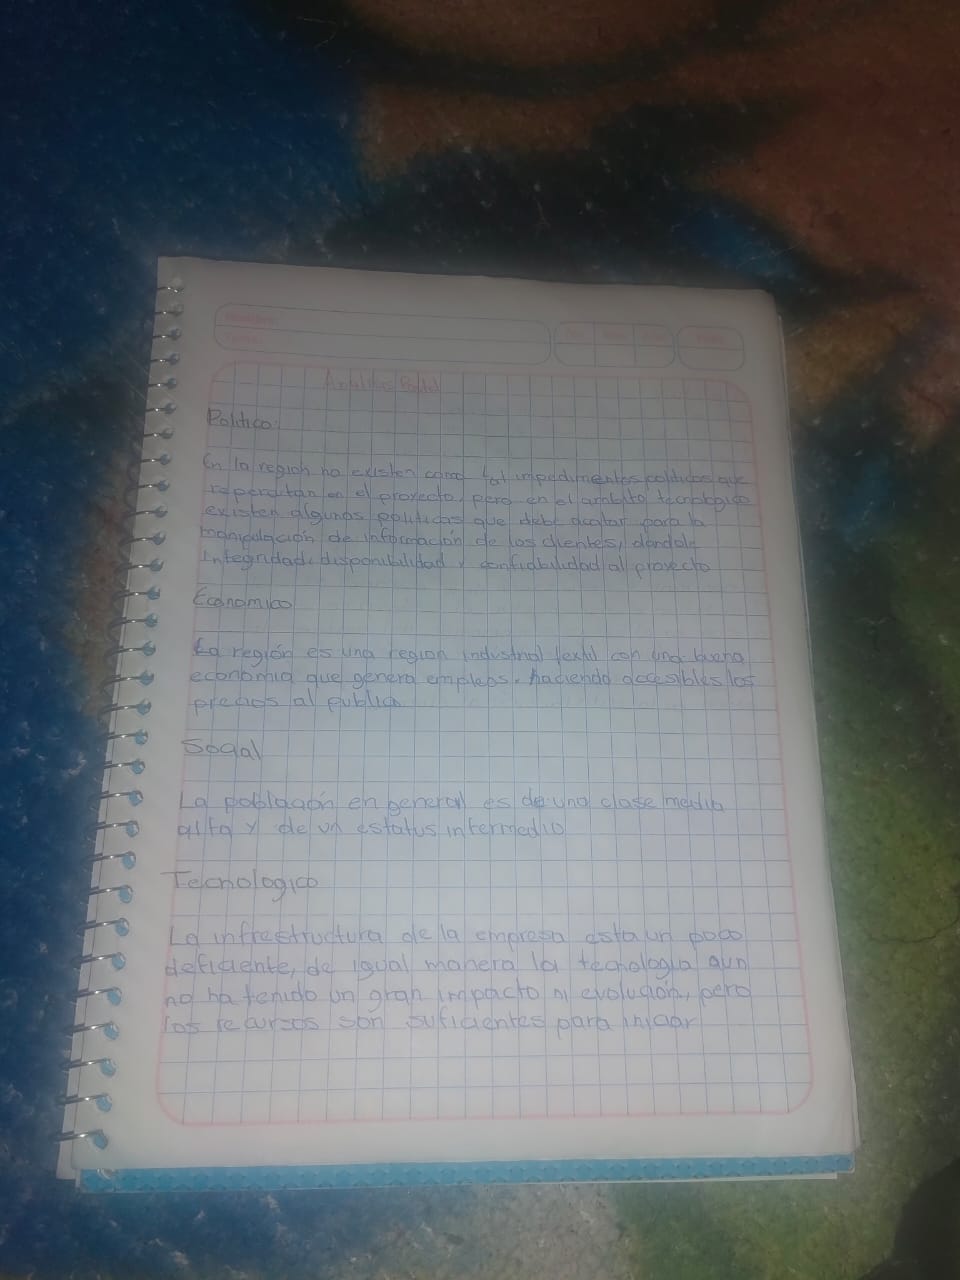 Politico:
En la region no existen como tal impedimentos politicos que
repercutan en el proyecto, pero en el ambito tecnologico
existen algunas politicas que debe acatar para la
manipulación de información de los clientes, dandole
integridad, disponibilidad y confiabilidad al proyecto
Economico
La región es una region industrial textil con una buena
economia que genera empleos. haciendo accesibles los
precios al publico
Social
La población en general es de una clase media
alta y de un estatus intermedio
Tecnologico
La infrestructura de la empresa esta un poco
deficiente, de igual manera la tecnologia aun
no ha tenido un gran impacto ni evolución, pero
los recursos son suficientes para iniciar